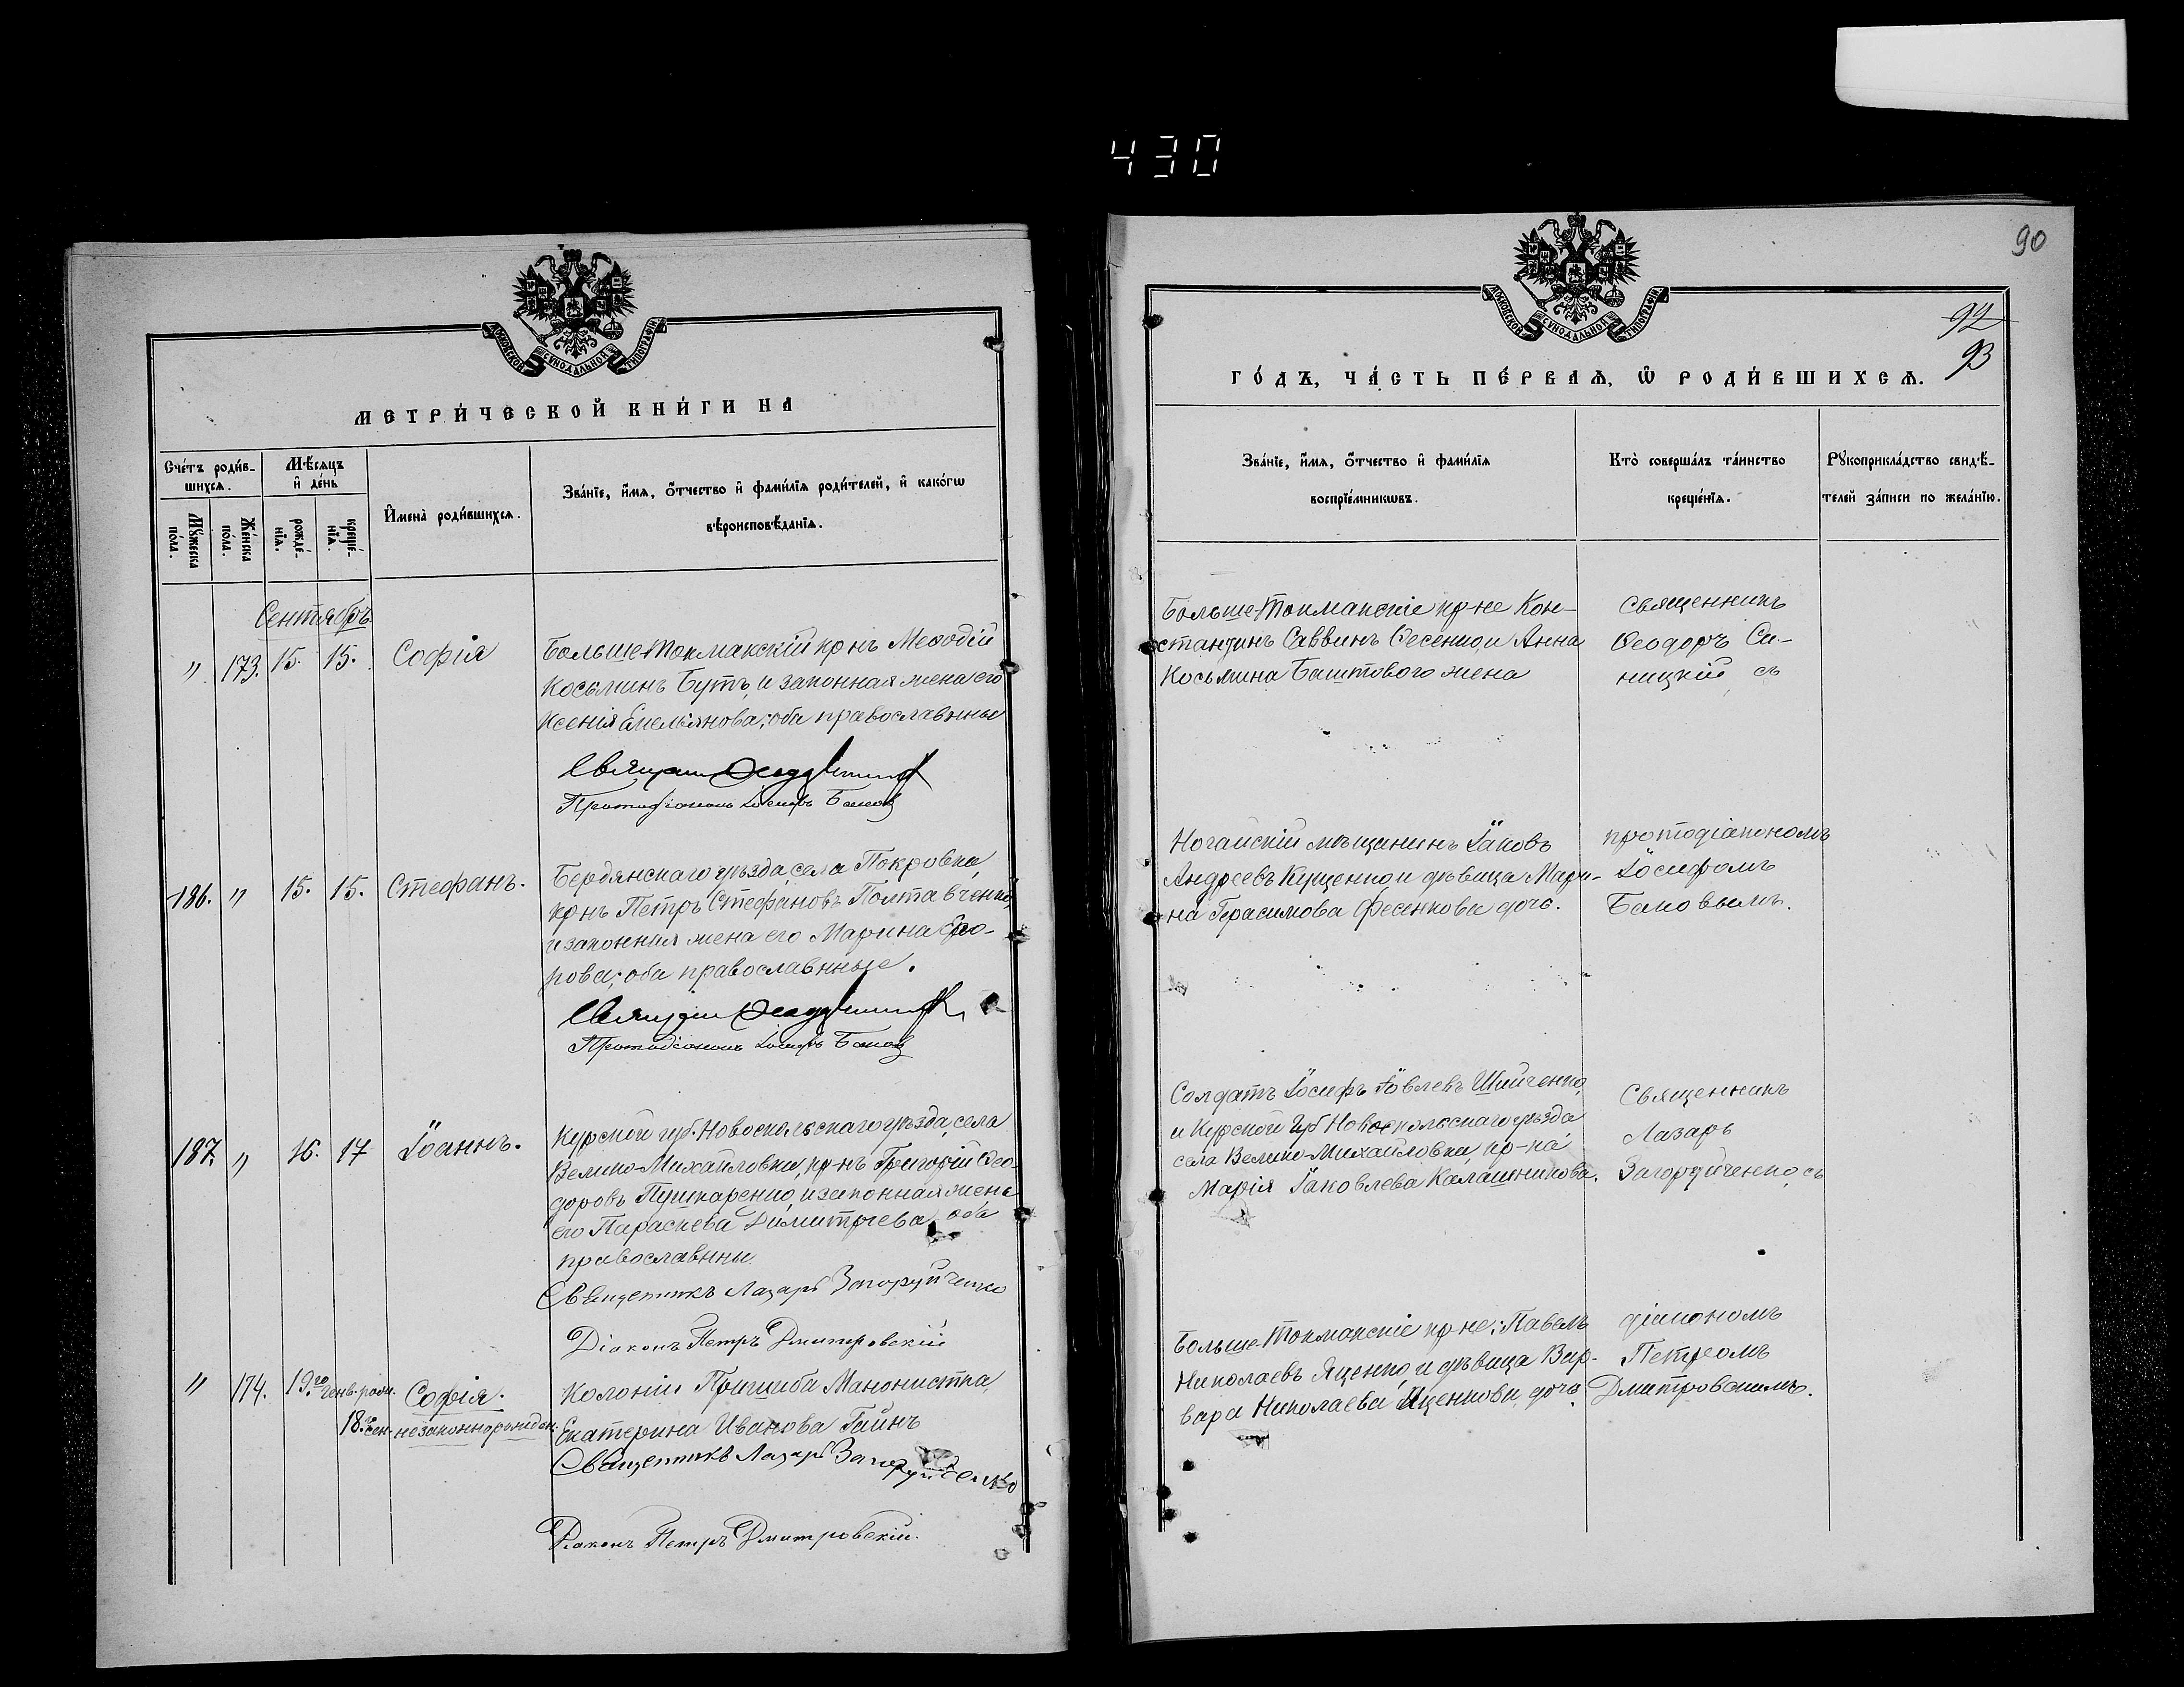 430
МОСКОВСКОЙ СУНОДАЛЬНОЙ ТИПОГРАФІИ
МЕТРИ́ЧЕСКОЙ КНИ́ГИ НА
Сче́тъ роди́в-
шихсѧ.
Мѣ́сѧцъ
и҆ де́нь
И҆мена̀ роди́вшихсѧ.
Зва́нїе, и҆́мѧ, ѻ҆́тчество и҆ фами́лїѧ роди́телей, и҆ како́гѡ
вѣроисповѣ́данїѧ.
Мꙋ́жеска
по́ла.
Же́нска
по́ла.
рожде́-
нїѧ.
креще́-
нїѧ.
Сентябрь
" 173. 15. 15. Софія
Больше-Токмакскій кр-нъ Меѳодій
Косьминъ Бутъ, и законная жена его
Ксенія Емельянова; оба православные
Протодіаконъ Іосифъ Баковъ
186. " 15. 15. Стефанъ.
Бердянскаго уѣзда, села Покровка,
кр-нъ Петръ Стефановъ Полтавченко,
и законная жена его Марина
рова; оба православные.
Протодіаконъ Іосифъ Баковъ
187. " 16. 17 Іоаннъ.
Курской губ. Новооскольскаго уѣзда, села
Велико-Михайловки, кр-нъ Григорій Ѳео-
доровъ Пушкаренко, и законная жена
его Параскева Димитріева, оба
православные.
Священникъ Лазарь Загоруйченко
Діаконъ Петръ Дмитровскій
" 174. 19го генв. роди. 18. сен. Софія.
незаконнорожден.
Колоніи Пришиба Манонистка,
Екатерина Иванова Гайнъ
Священникъ Лазарь Загоруйченко
Діаконъ Петръ Дмитровскій.
90
МОСКОВСКОЙ СУНОДАЛЬНОЙ ТИПОГРАФІИ
92
93
ГО́ДЪ, ЧА́СТЬ ПЕ́РВАѦ, Ѡ҆ РОДИ́ВШИХСѦ.
Зва́нїе, и҆́мѧ, ѻ҆́тчество и҆ фами́лїѧ
воспрїе́мникѡвъ.
Кто̀ соверша́лъ та́инство
креще́нїѧ.
Рꙋкоприкла́дство свидѣ́-
телей за́писи по жела́нїю.
Больше-Токмакскіе кр-не Кон-
стантинъ Саввинъ Ѳесенко, и Анна
Косьмина Баштового жена
Священникъ
Ѳеодоръ Си-
ницкій съ
Ногайскій мѣщанинъ Іаковъ
Андреевъ Куценко и дѣвица Мари-
на Герасимова Фесенкова дочь.
протодіакономъ
Іосифомъ
Баковымъ.
Солдатъ Іосифъ Іовлевъ Шийченко,
и Курской губ Новооскольскаго уѣзда
села Велико-Михайловки, кр-ка
Марія Іаковлева Калашникова.
Священникъ
Лазарь
Загоруйченко, съ
Больше-Токмакскіе кр-не: Павелъ
Николаевъ Яценко, и дѣвица Вар-
вара Николаева Яценкова, дочь.
діакономъ
Петромъ
Дмитровскимъ.